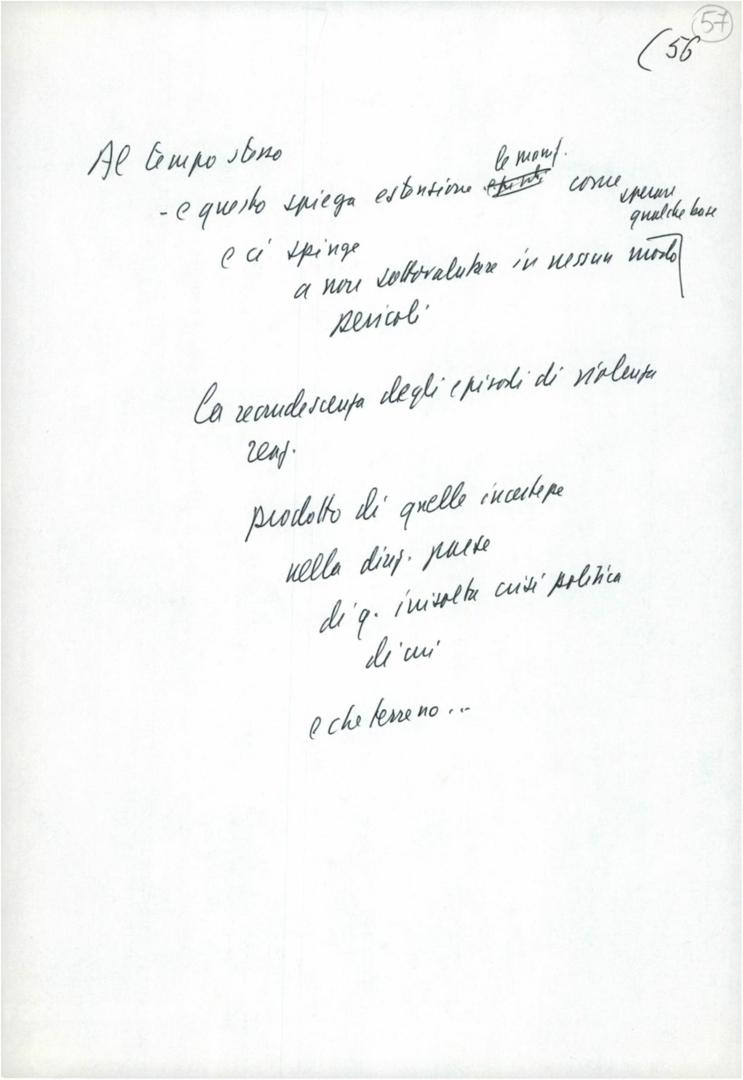 57
(56
Al tempo stesso
le manif.
- e questo spiega estensione come
sperare
qualche base
e ci spinge
a non sottovalutare in nessun modo
pericoli
La recrudescenza degli episodi di violenza
reaz.
prodotto di quelle incertezze
nella direz. paese
di q. irrisolta crisi politica
di cui
e che terreno...